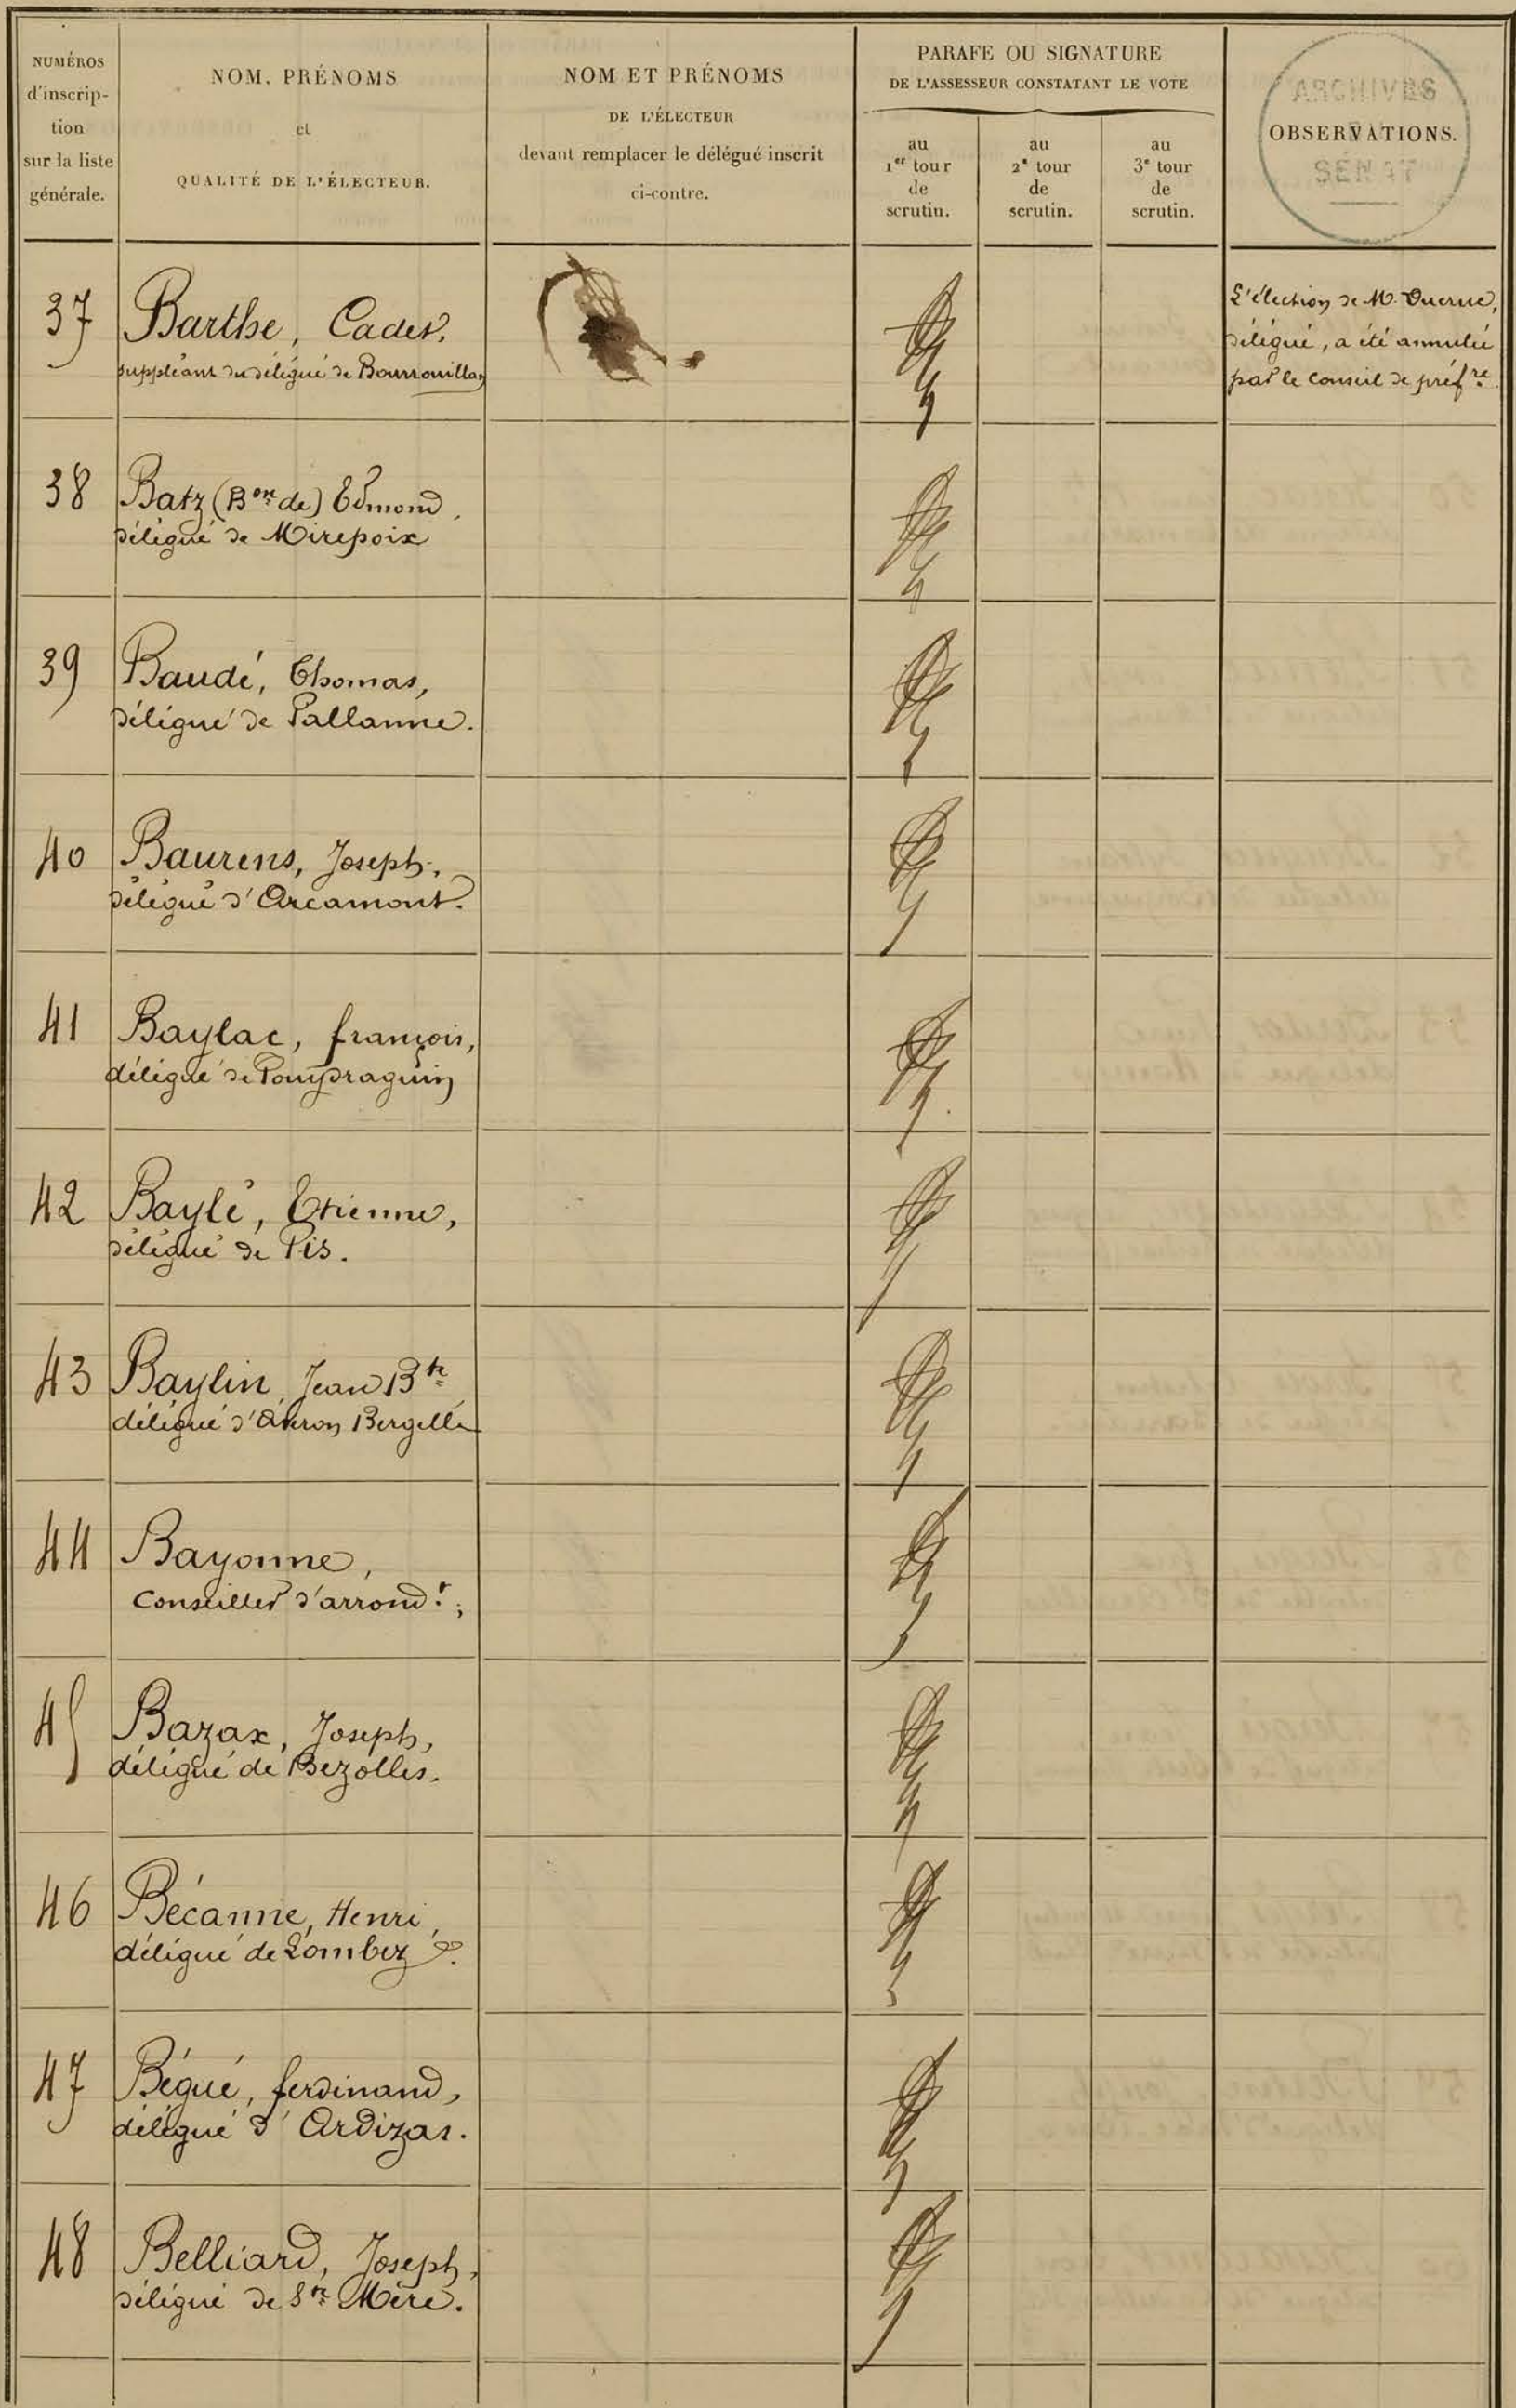 NUMÉROS
d'inscrip-
tion
sur la liste
générale.
NOM, PRÉNOMS
et
QUALITÉ DE L'ÉLECTEUR.
NOM ET PRÉNOMS
DE L'ÉLECTEUR
devant remplacer le délégué inscrit
ci-contre.
PARAFE OU SIGNATURE
DE L'ASSESSEUR CONSTATANT LE VOTE
au
1er tour
de
scrutin.
au
2e tour
de
scrutin.
au
3e tour
de
scrutin.
ARCHIVES
OBSERVATIONS.
SÉNAT
37
Barthe, Cadet,
suppléant du délégué de Bourrouillan
L'élection de M. Duerne,
délégué, a été annulée
par le Conseil de préfre
38
Batz (Bon de) Edmond,
délégué de Mirepoix
39
Baudé, Thomas,
délégué de Pallanne.
40
Baurens, Joseph,
délégué d'Arcamont.
41
Baylac, françois,
délégué de Pouydraguin
42
Baylé, Etienne,
délégué de Pis.
43
Baylin, Jean Bte
délégué d'Averon Bergelle
44
Bayonne,
Conseiller d'arrondt;
45
Bazax, Joseph,
délégué de Bezolles.
46
Bécanne, Henri,
délégué de Lombez
47
Bégué, ferdinand,
délégué d'Ardizas.
48
Belliard, Joseph,
délégué de Ste Mère.